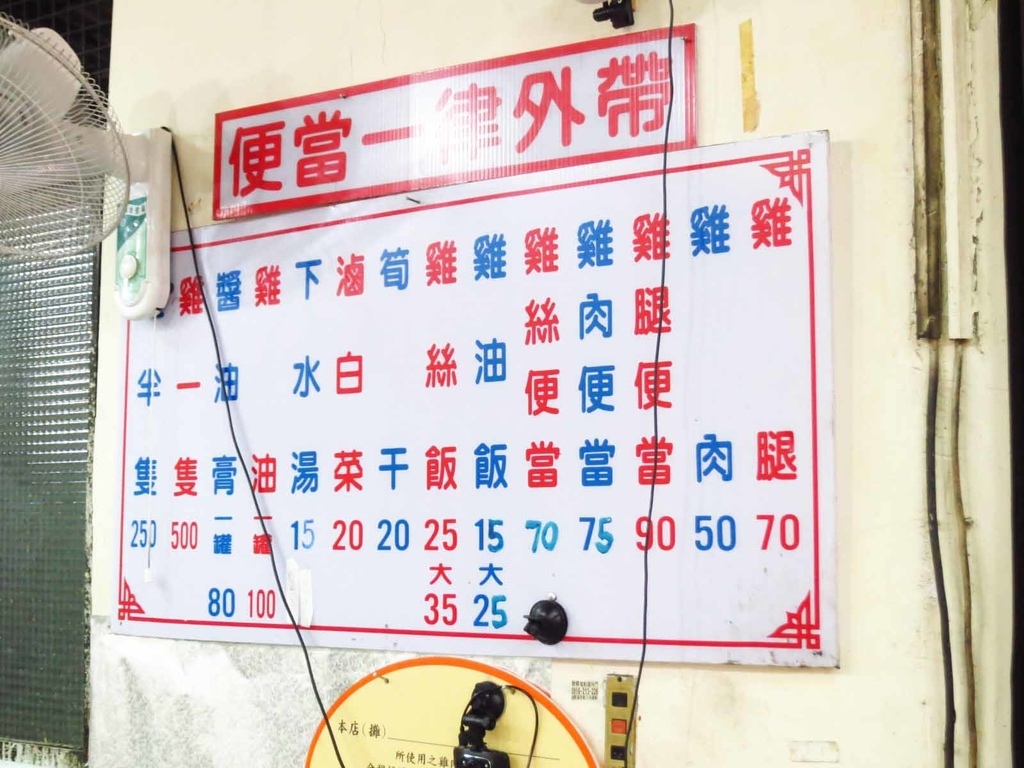 便當一律外帶
雞腿 70
雞肉 50
雞腿便當 90
雞肉便當 75
雞絲便當 70
雞油飯 15 大 25
雞絲飯 25 大 35
筍干 20
滷白菜 20
下水湯 15
雞油 一罐 100
醬油膏 一罐 80
雞一隻 500
半隻 250
本店(攤)
所使用之雞肉